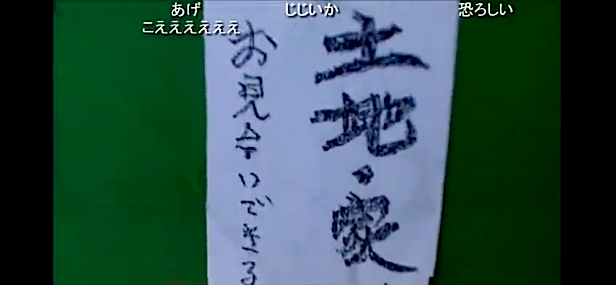 あげ
じじいか
恐ろしい
こえええええええ
土地・家
お見合いできる